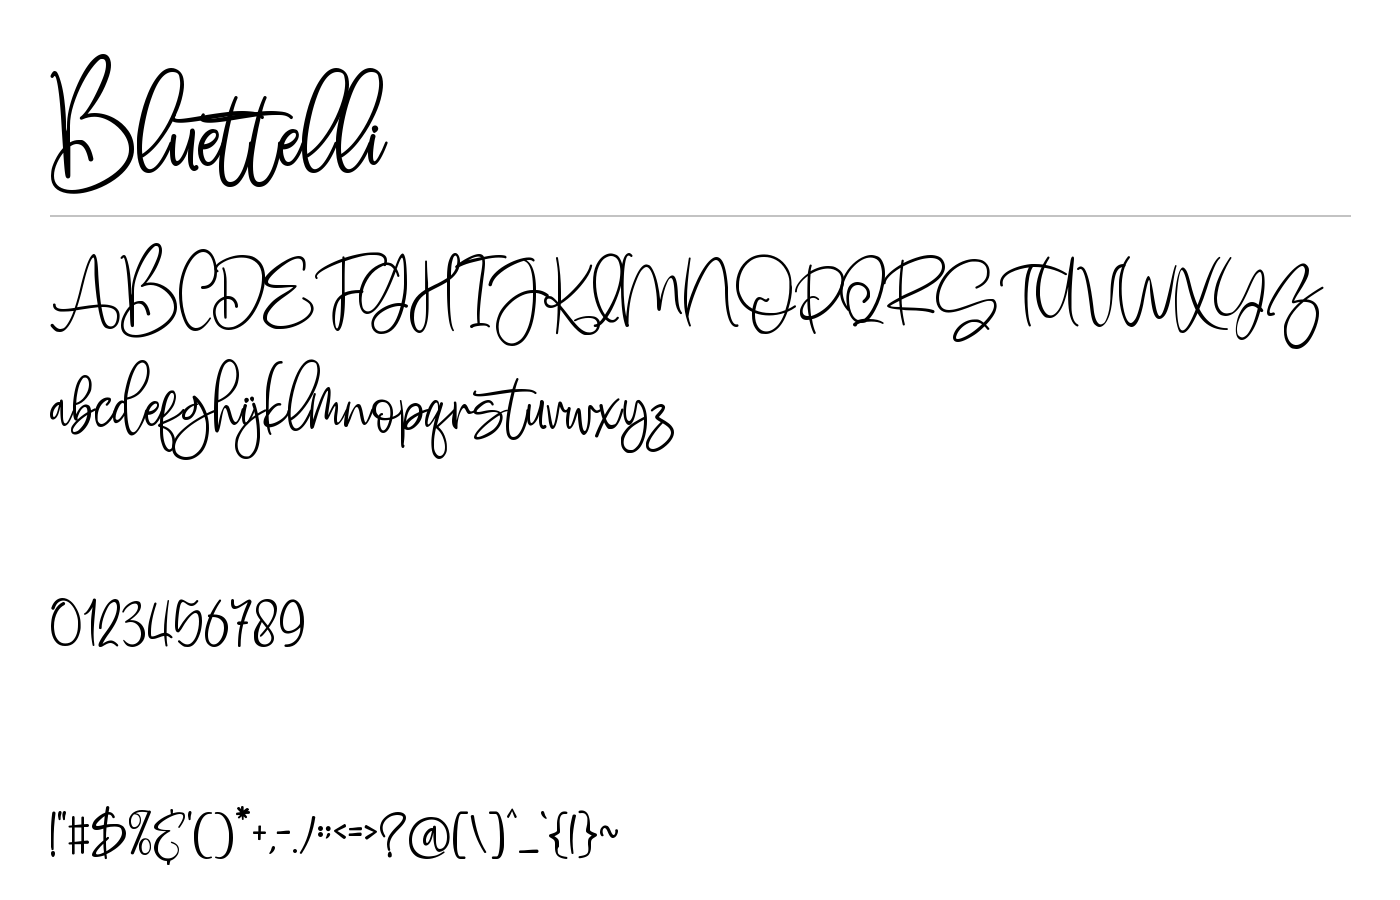 Bluettelli
ABCDEFGHIJKLMNOPQRSTUVWXYZ
abcdefghijklmnopqrstuvwxyz
0123456789
!"#$%&'()*+,-./:;<=>?@[\]^_`{|}~